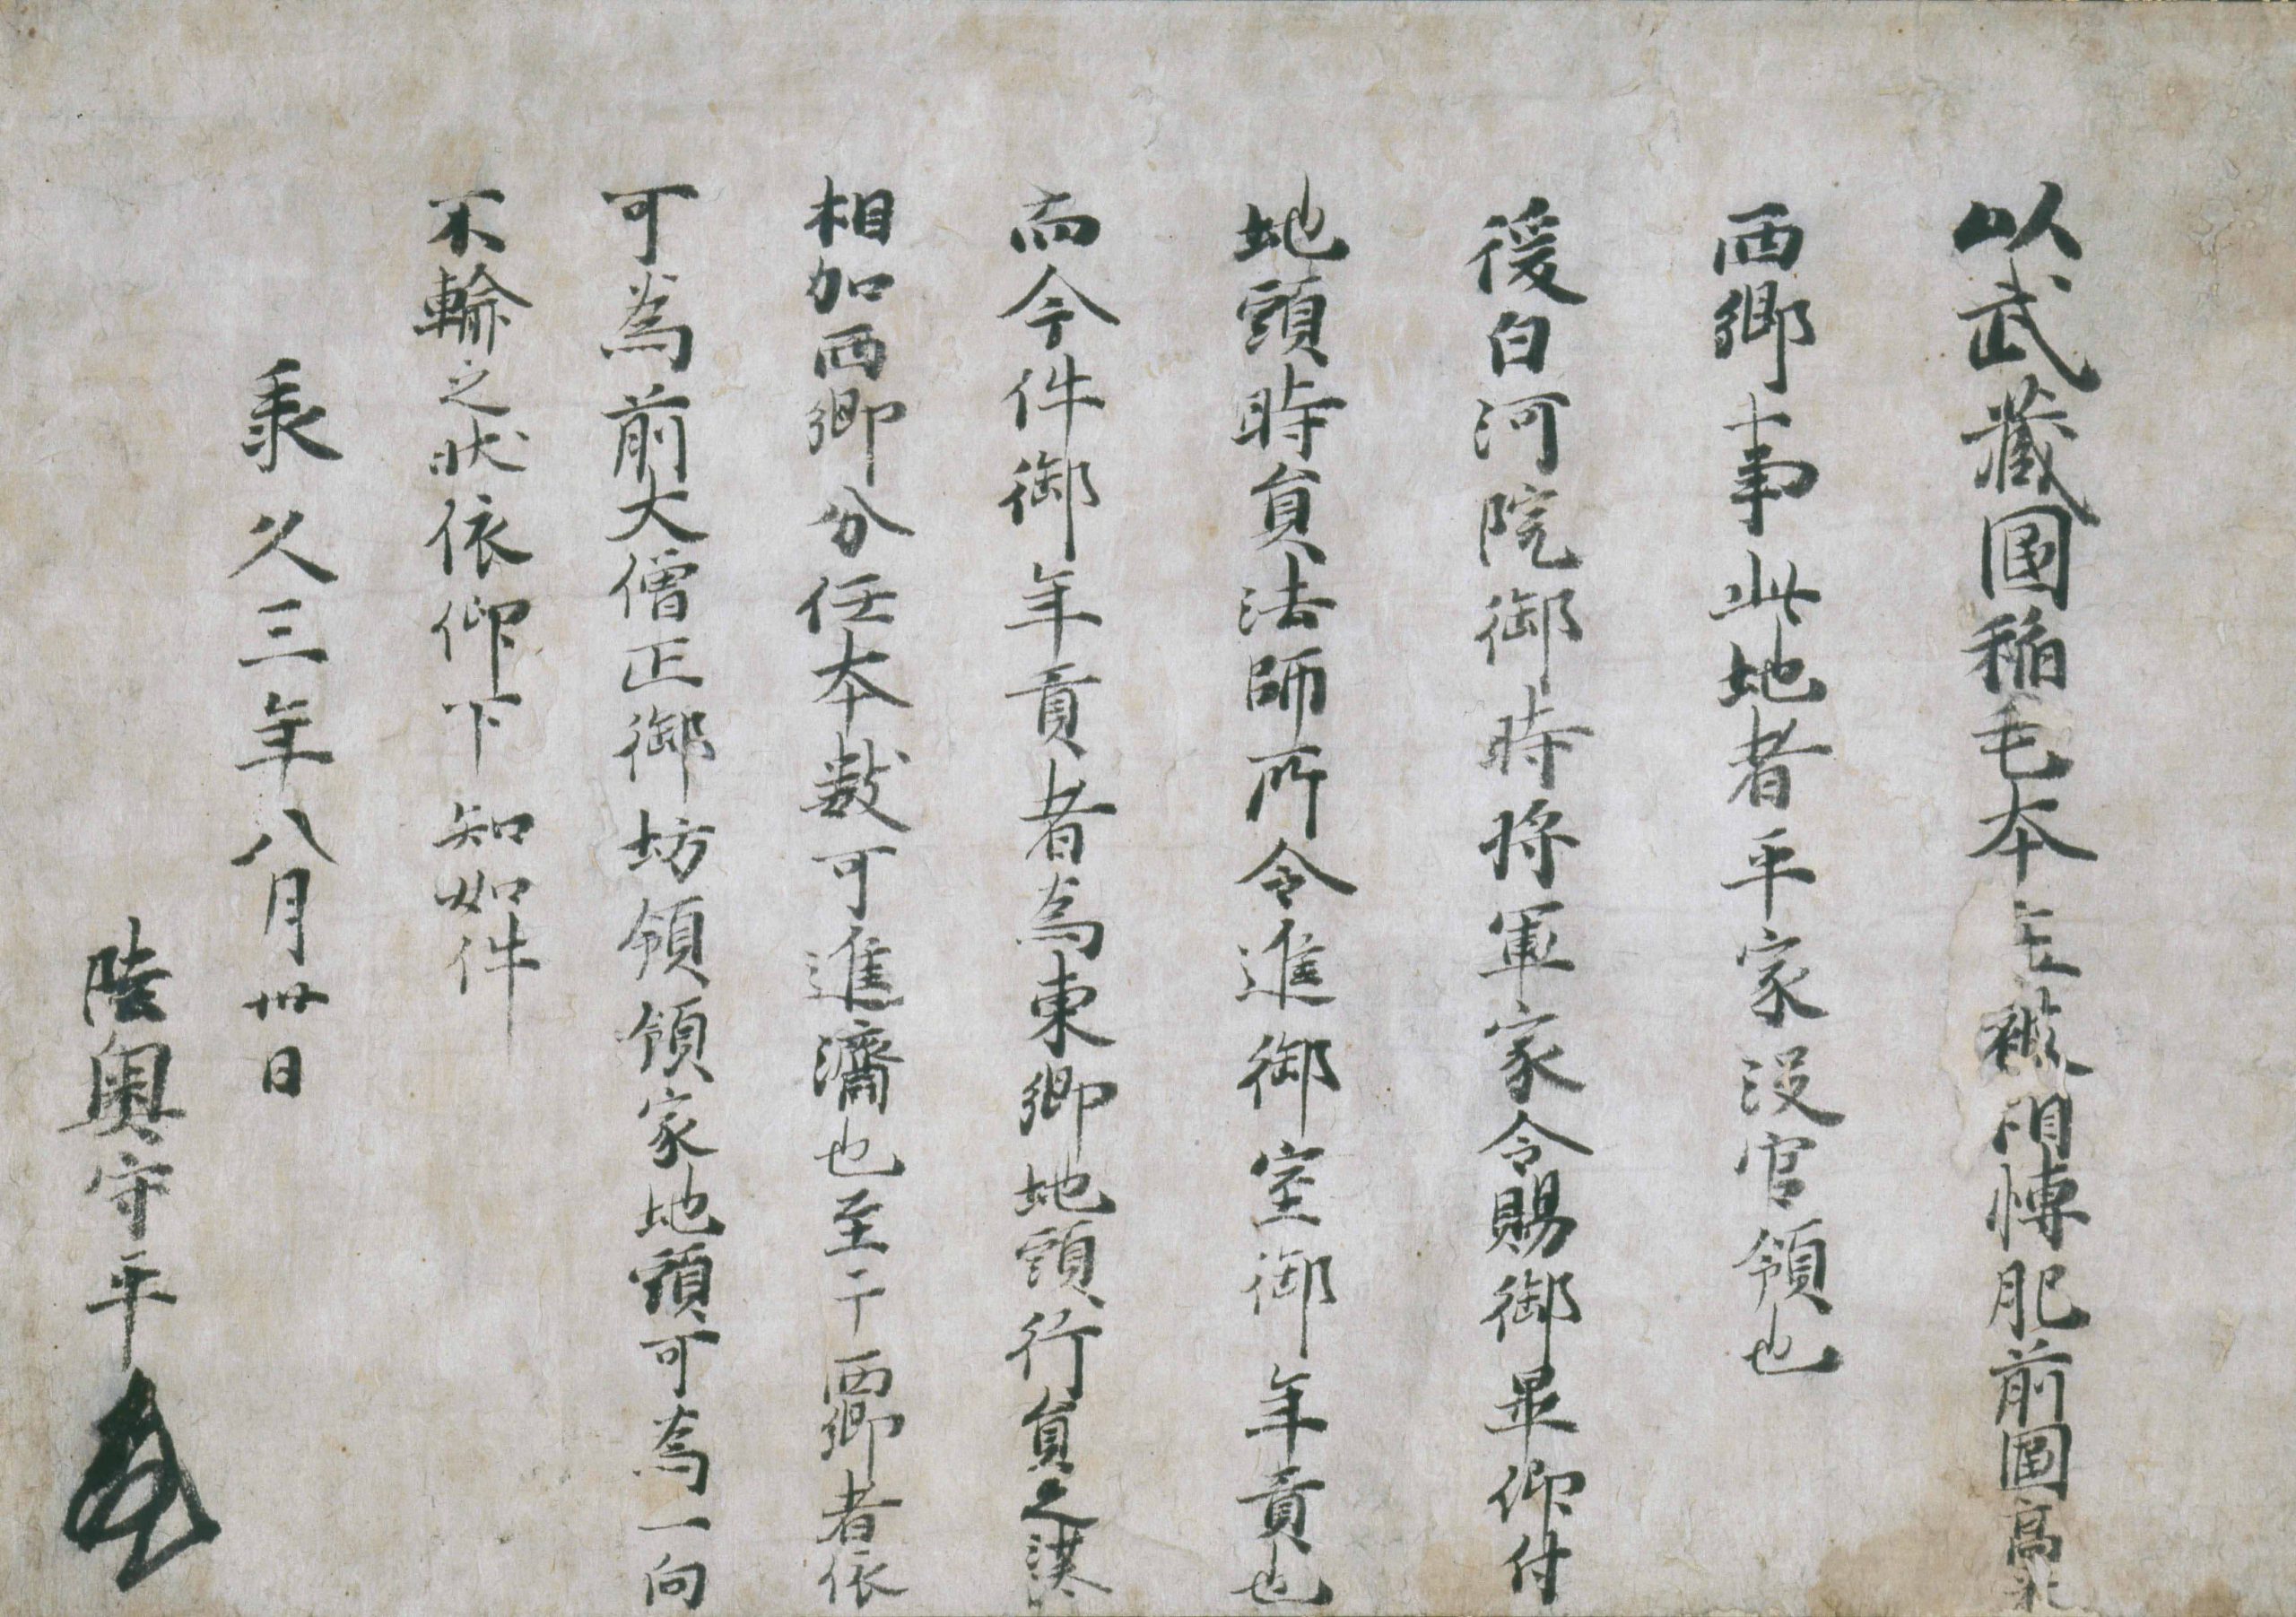 以武蔵國稲毛本主被相博肥前國高来
西郷事此地者平家没官領也
後白河院御時将軍家令賜御畢仰付
地頭時員法師所令進御室御年貢也
而今件御年貢者為東郷地頭行員之沙汰
相加西郷分任本數可進濟也至于西郷者依
可為前大僧正御坊領領家地頭可為一向
不輸之状依仰下知如件
承久三年八月卅日
陸奥守平